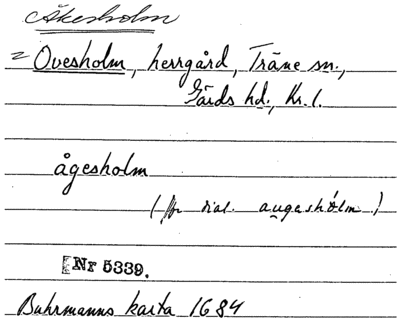 Åkesholm
= Ovesholm, herrgård, Träne sn.,
Gärds hd., Kr. l.
ågesholm
(jfr dial. augeshólm.)
[Nr 5339.
Buhrmanns karta 1684